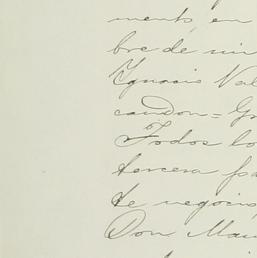 mento, en
bre de mi
Ygnacio Val
candon = Gr
Todos lo
tercera pa
te negocio,
Don Man